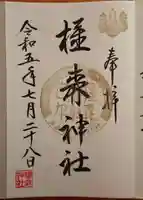 奉拝
橿森神社
令和五年七月二十八日